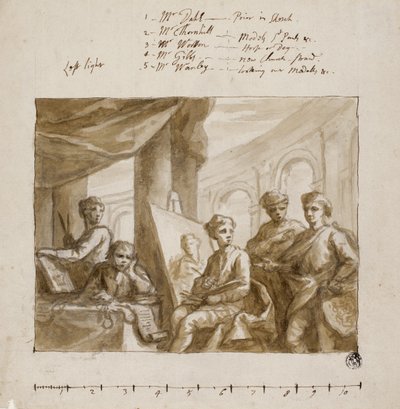 1 - Mr Dahl — Prior in Sketch.
2 - Mr Thornhill — Models St Pauls &c.
3 - Mr Wootton — Horse or Dog
4 - Mr Gibbs — new Church Strand.
5 - Mr Wanley — looking on Models &c.
Left light
1 2 3 4 5 6 7 8 9 10